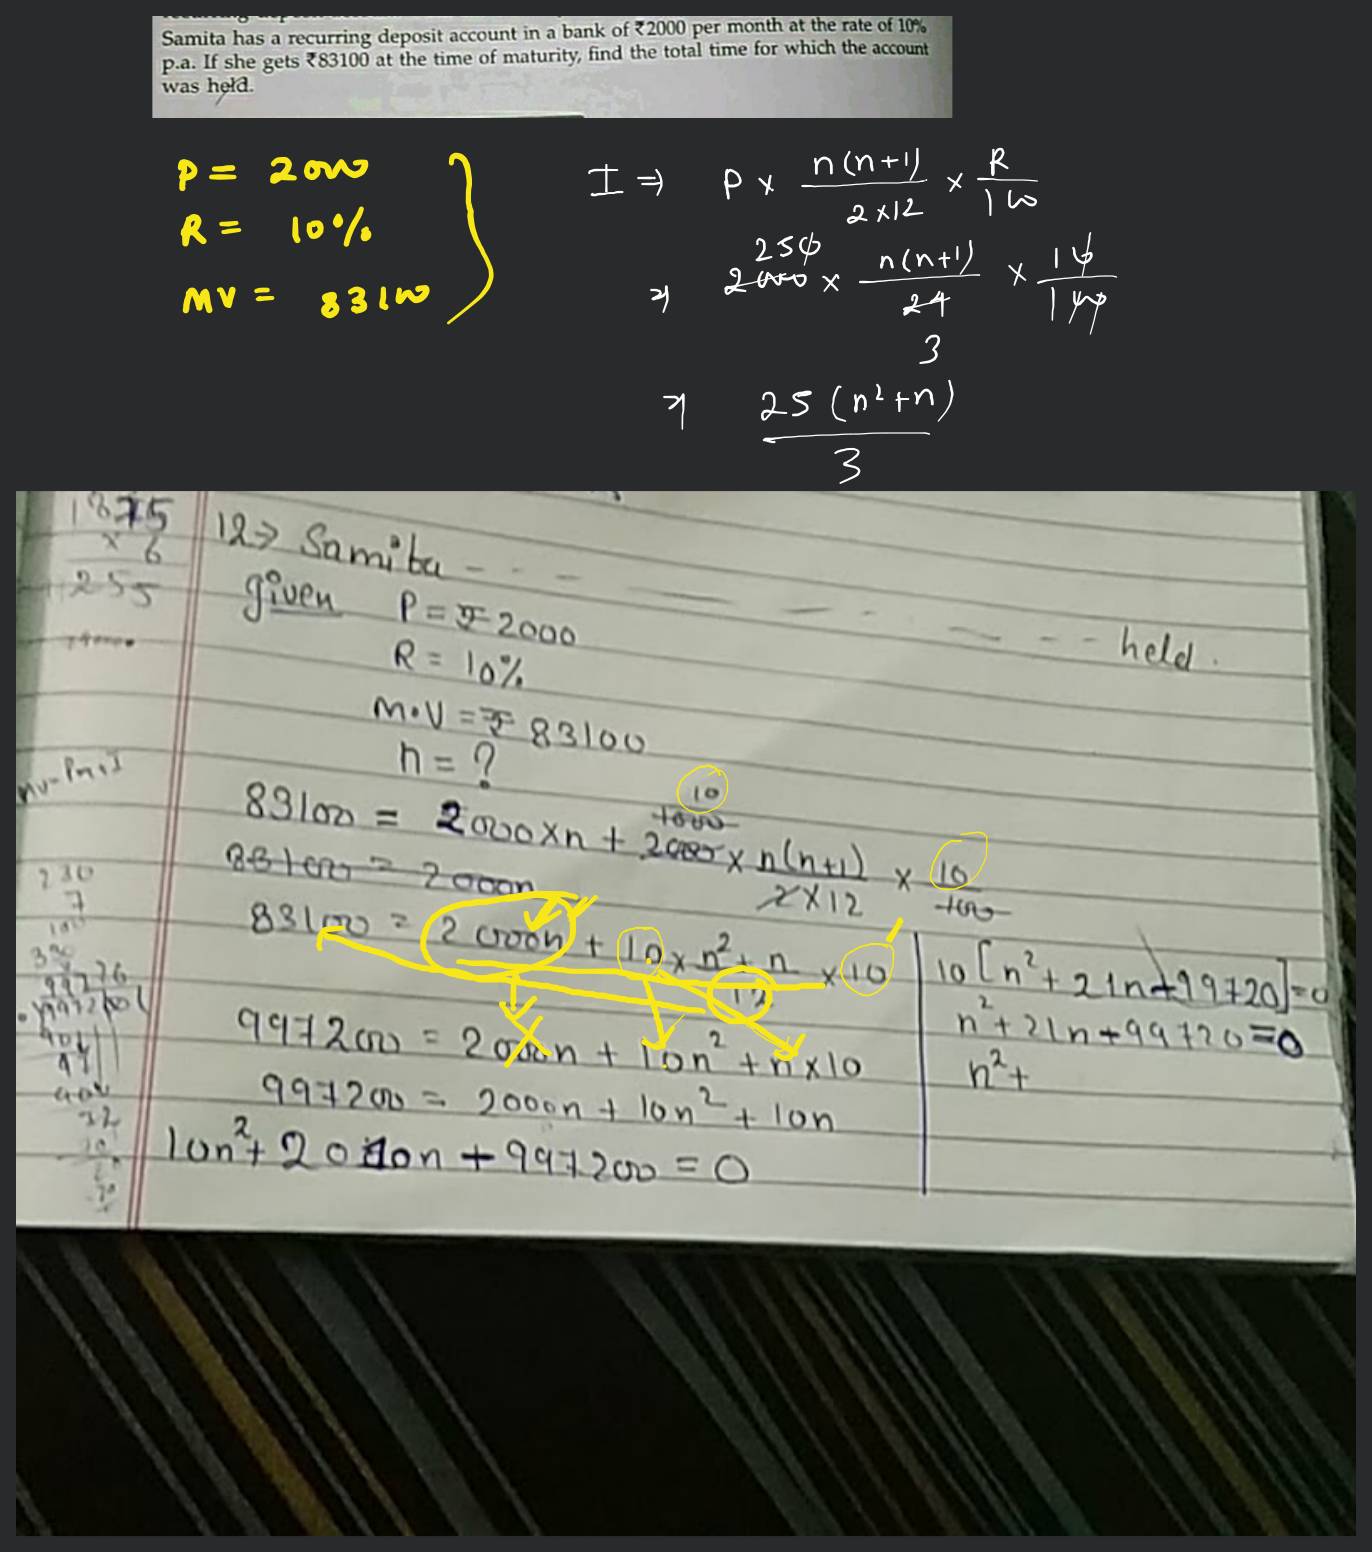 Samita has a recurring deposit account in a bank of ₹2000 per month at the rate of 10%
p.a. If she gets ₹83100 at the time of maturity, find the total time for which the account
was held.
P = 2000
R = 10%
MV = 83100
I ⇒ P × n(n+1)/2×12 × R/100
⇒ 2000 × n(n+1)/24 × 10/100
250
3
⇒ 25(n²+n)/3
1875
× 6
255
12⇒ Samita - - - - - - - - - held.
given P = ₹2000
R = 10%
M.V = ₹83100
n = ?
MV = Pn + I
83100 = 2000×n + 2000 × n(n+1)/2×12 × 10/100
10
1000
83100 = 2000n
83100 = 2000n + 10 × n²+n/12 × 10
997200 = 2000n + 10n² + n×10
997200 = 2000n + 10n² + 10n
10n² + 2010n + 997200 = 0
10[n² + 21n + 99720] = 0
n² + 21n + 99720 = 0
n² +
230
7